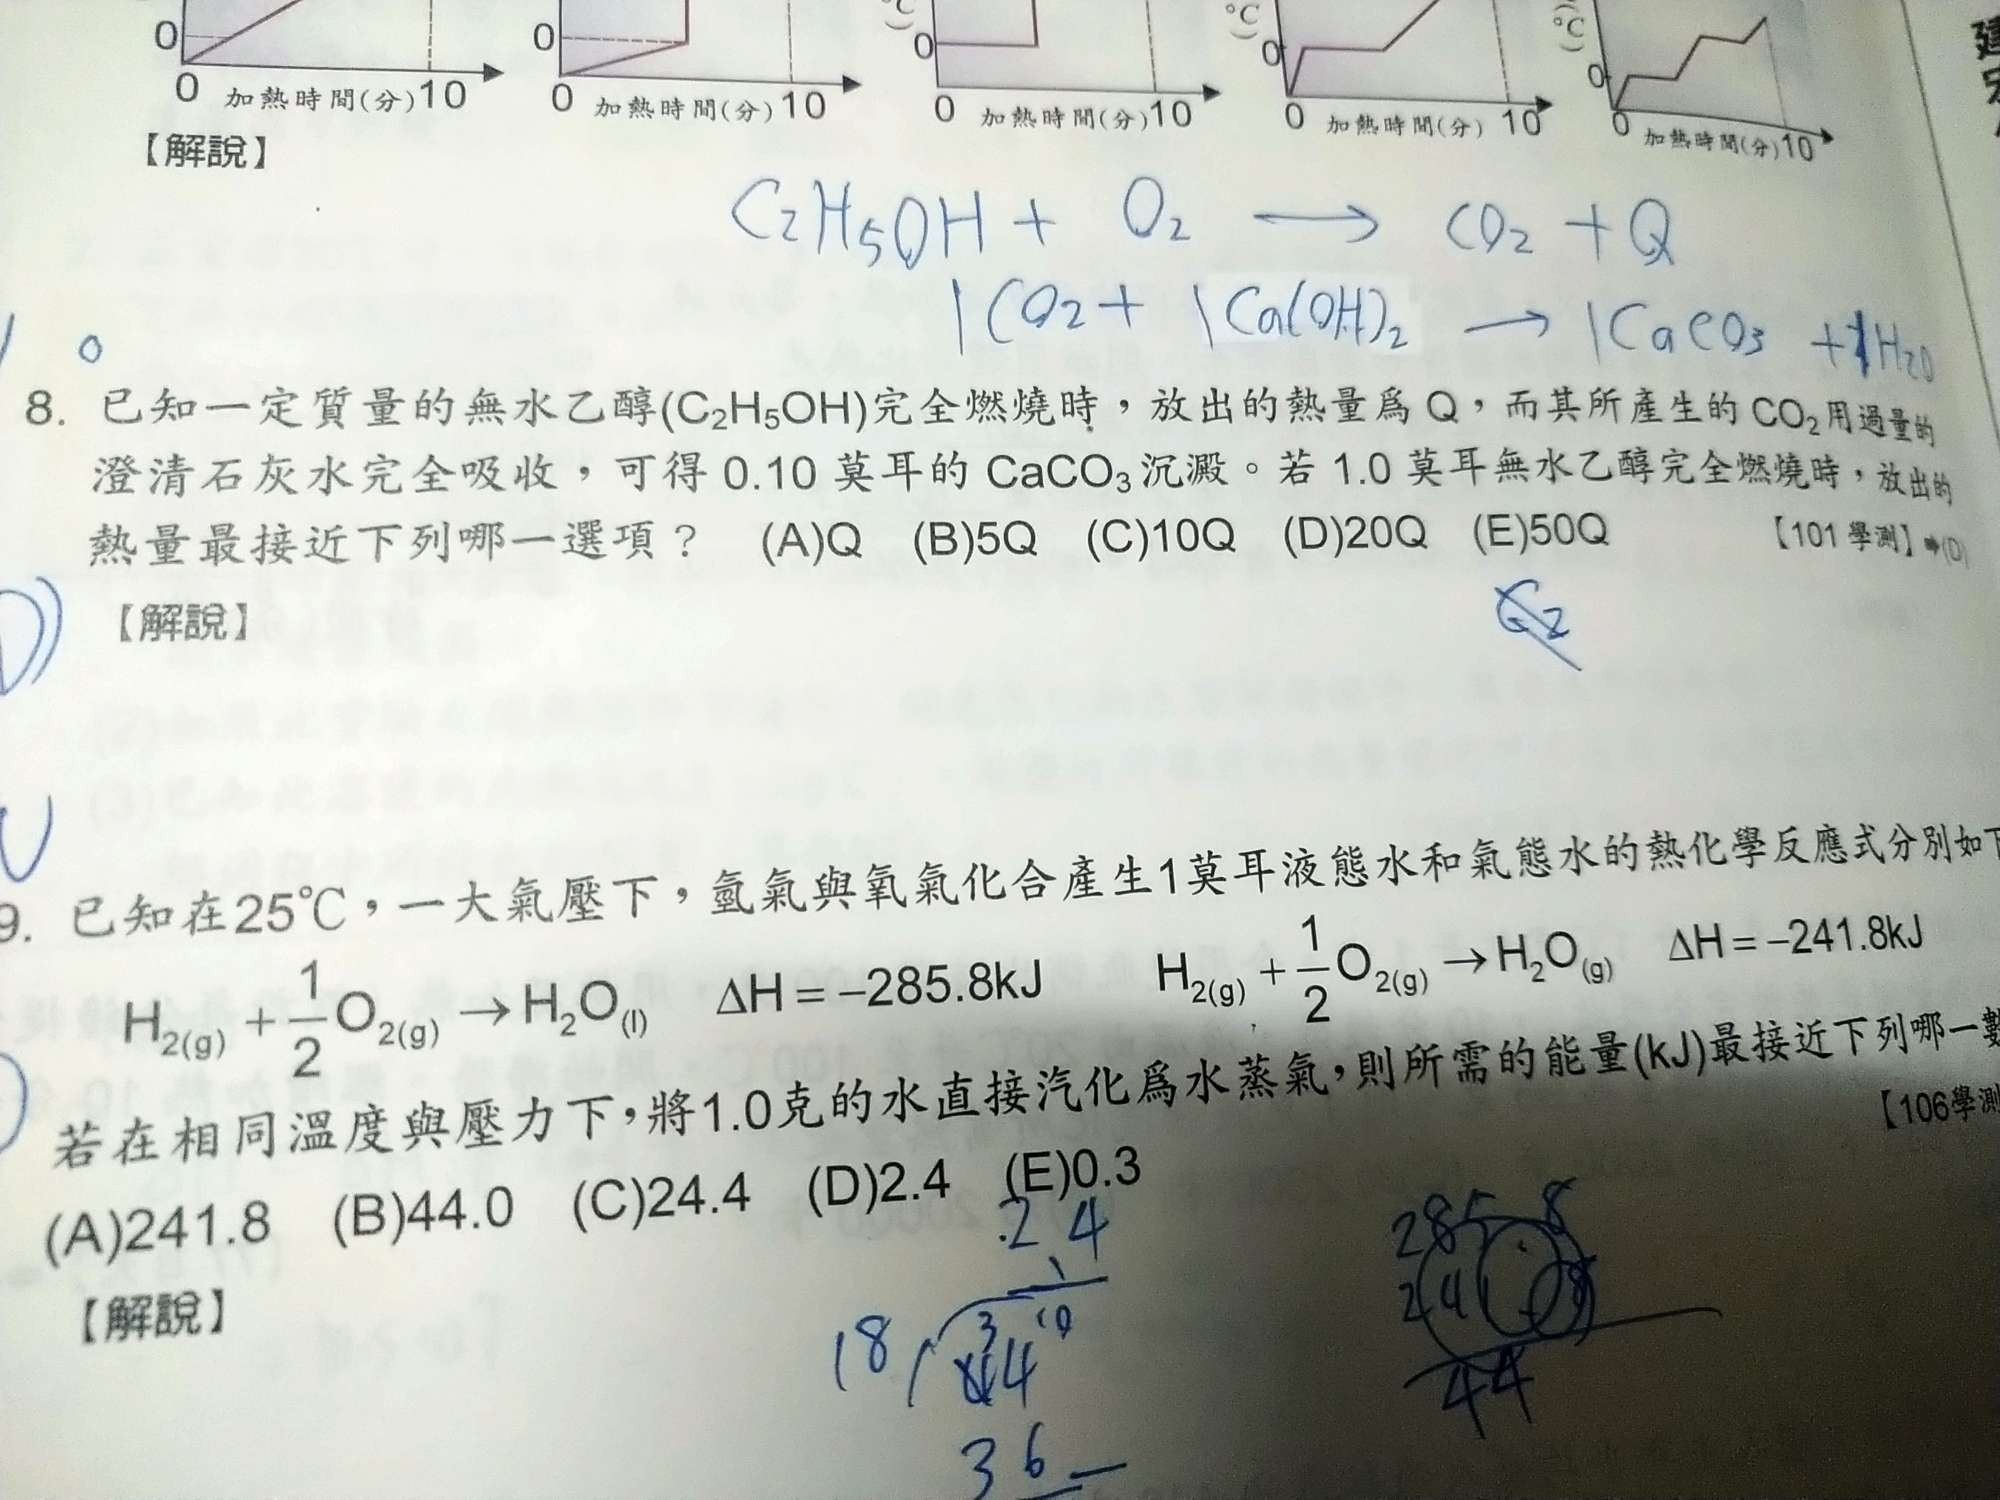 0 0 0 °C 0 °C 0 °C
0 加熱時間(分)10 0 加熱時間(分)10 0 加熱時間(分)10 0 加熱時間(分) 10 0 加熱時間(分)10
【解說】
C₂H₅OH + O₂ → CO₂ + Q
1CO₂ + 1Ca(OH)₂ → 1CaCO₃ + 1H₂O
8. 已知一定質量的無水乙醇(C₂H₅OH)完全燃燒時,放出的熱量爲 Q,而其所產生的 CO₂ 用過量的
澄清石灰水完全吸收,可得 0.10 莫耳的 CaCO₃ 沉澱。若 1.0 莫耳無水乙醇完全燃燒時,放出的
熱量最接近下列哪一選項? (A)Q (B)5Q (C)10Q (D)20Q (E)50Q 【101 學測】➡(D)
【解說】
9. 已知在25℃,一大氣壓下,氫氣與氧氣化合產生1莫耳液態水和氣態水的熱化學反應式分別如下
H₂(g) + 1/2 O₂(g) → H₂O(l) ΔH = −285.8kJ H₂(g) + 1/2 O₂(g) → H₂O(g) ΔH = −241.8kJ
若在相同溫度與壓力下,將1.0克的水直接汽化爲水蒸氣,則所需的能量(kJ)最接近下列哪一數
【106學測
(A)241.8 (B)44.0 (C)24.4 (D)2.4 (E)0.3
【解說】
2.4
18 44
36
285.8
241.8
44